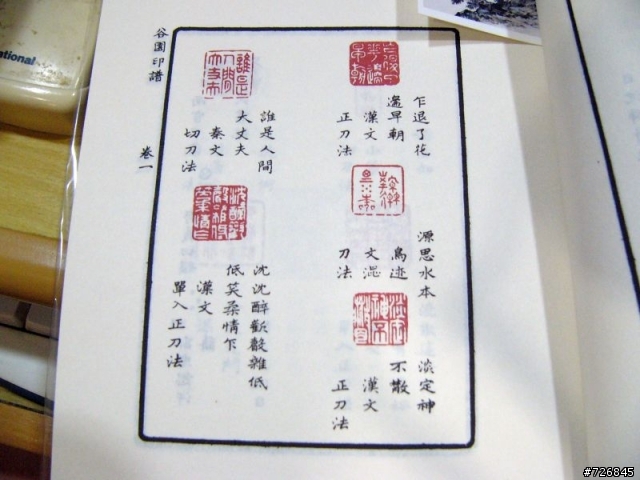 谷園印譜
卷一
乍退了花
邊早朝
漢文
正刀法
源思水本
鳥迹
文澁
刀法
淡定神
不散
漢文
正刀法
誰是人間
大丈夫
秦文
切刀法
沈沈醉 低
低 柔情乍
漢文
單入正刀法
ational
#726845